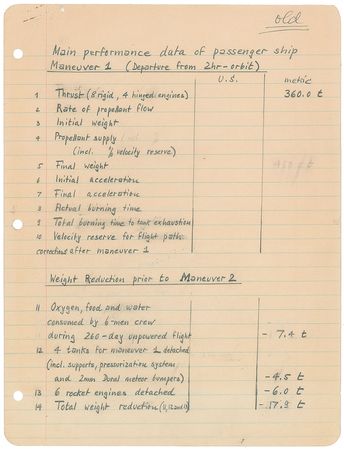 old
Main performance data of passenger ship
Maneuver 1 (Departure from 2hr-orbit)
U.S. metric
1 Thrust (8 rigid, 4 hinged engines) 360.0 t
2 Rate of propellant flow
3 Initial weight
4 Propellant supply
(incl. % velocity reserve)
5 Final weight
6 Initial acceleration
7 Final acceleration
8 Actual burning time
9 Total burning time to tank exhaustion
10 Velocity reserve for flight path
corrections after maneuver 1
Weight Reduction prior to Maneuver 2
11 Oxygen, food and water
consumed by 6-men crew
during 260-day unpowered flight - 7.4 t
12 4 tanks for maneuver 1 detached
(incl. supports, pressurization system,
and 2mm Dural meteor bumpers) -4.5 t
13 6 rocket engines detached -6.0 t
14 Total weight reduction (11, 12 and 13) -17.9 t